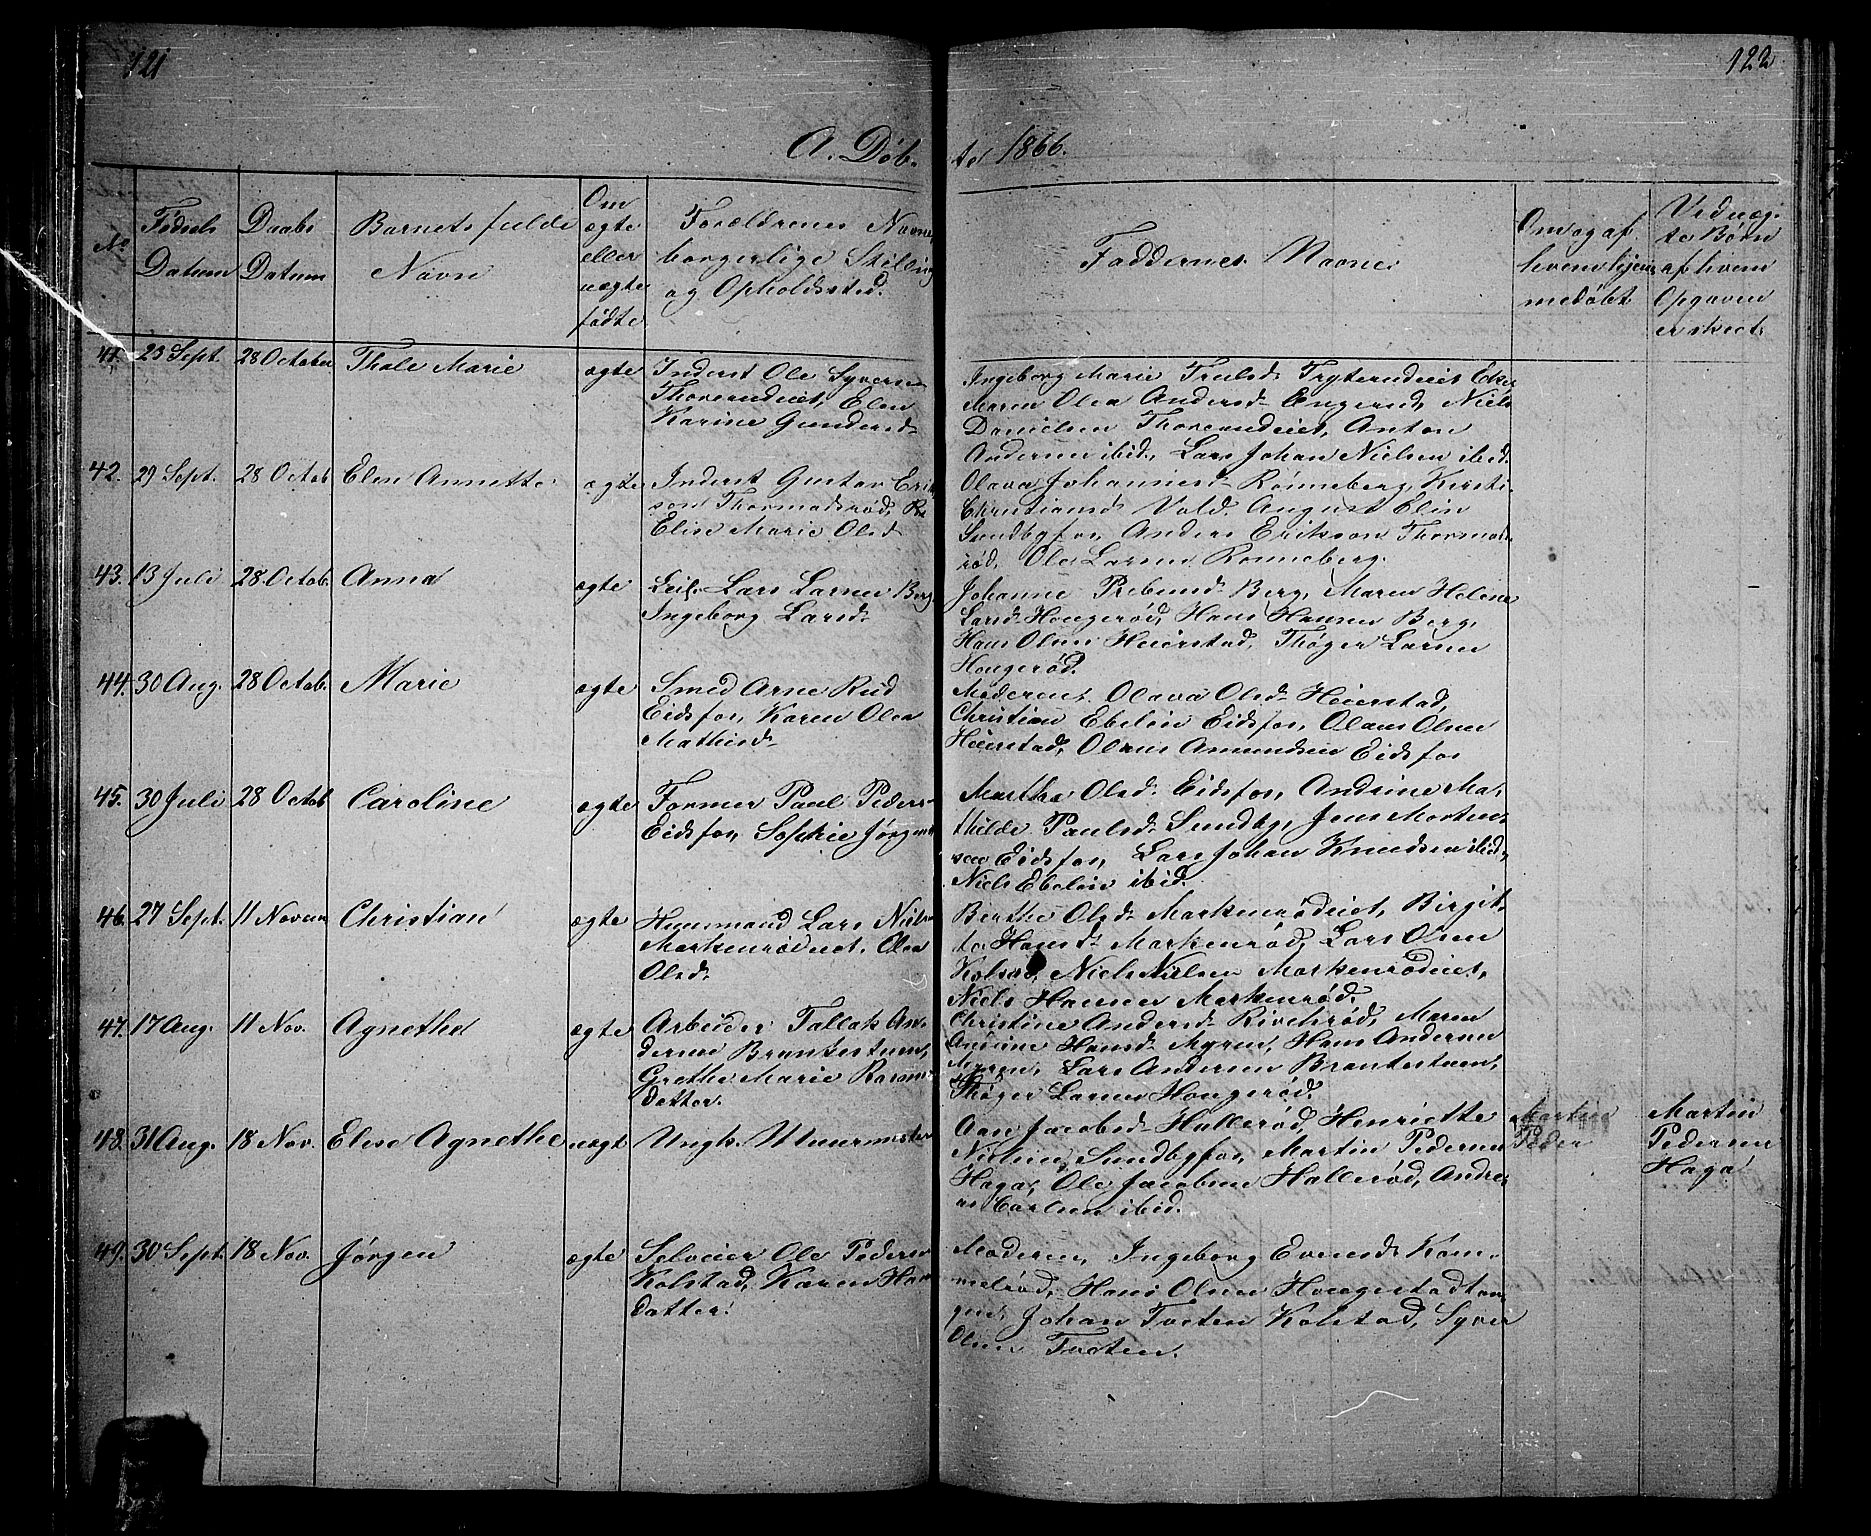 121
122
A. Døb-
te 1866.
No
Fødsels
Datum
Daabs
Datum
Barnets fulde
Navn
Om
ægte
eller
uægte
fødte
Forældrenes Navne,
borgerlige Stilling
og Opholdssted.
Faddernes Navne.
Om og af
hvem hjem
medøbt
Ved uæg-
te Børn
af hvem
Opgaven
er skeet.
41. 23 Sept. 28 October Thale Marie ægte
Inderst Ole Syvers
Thorerudeiet, Elen
Karine Gundersd.
Ingeborg Marie Trulsd.
Maren Olea Andersd. Engerud, Niels
Danielsen Thorerudeiet, Anton
Andersen ibid., Lars Johan Nielsen ibid.
42. 29 Sept. 28 Octob Elen Annette ægte
Inderst Gustav Erik
son Thormodsrød,
Elise Marie Olsd
Olava Johannesd. Rønneberg, Kersti
Christiansd. Vold. August Elin
Sundbyfos, Anders Erikson Thormods
rød, Ole Larsen Rønneberg.
43. 13 Juli 28 Octob. Anna ægte
Leil. Lars Larsen Berg
Ingeborg Larsd.
Johanne Prebensd. Berg, Maren Helene
Larsd. Hougerød, Hans Hansen Berg,
Hans Olsen Heierstad, Thøger Larsen
Hougerød.
44. 30 Aug. 28 Octob. Marie ægte
Smed Arne Rud
Eidsfos, Karen Olea
Mathisd.
Moderen, Olava Olsd. Heierstad,
Christian Ebelin Eidsfos, Olaus Olsen
Heierstad, Olaus Amundsen Eidsfos
45. 30 Juli 28 Octob Caroline ægte
Former Paul Peders
Eidsfos, Sophie Jørgens
Marthe Olsd. Eidsfos, Andrine Ma-
thilde Paulsd. Sundby, Jens Morten-
sen Eidsfos, Lars Johan Knudsen ibid.,
Niels Ebelin ibid.
46. 27 Sept. 11 Novem Christian ægte
Huusmand Lars Niels
Markenrødeiet, Olea
Olsd.
Berthe Olsd. Markenrødeiet, Birgit-
te Hansd. Markenrød, Lars Olsen
Kolsrød, Niels Nielsen Markenrødeiet,
Niels Hansen Markenrød.
47. 17 Aug. 11 Nov. Agnethe ægte
Arbeider Tallak An-
dersen Brantestuen,
Grethe Marie Rasmus-
datter.
Christine Andersd. Maren
Andrine Hansd. Myren, Hans Andersen
Myren, Lars Andersen Brantestuen,
Thøger Larsen Hougerød.
48. 31 Aug. 18 Nov. Elise Agnethe uægt
Ungk.
Ann Jacobsd. Hallerød, Henriette
Nielsen, Sundbyfos, Martin Pedersen
Haga, Ole Jacobsen Hallerød, Andre-
as Carlsen ibid.
Martin
Peder
Martin
Pedersen
Haga
49. 30 Sept. 18 Nov. Jørgen ægte
Selveier Ole Pedersen
Kolstad, Karen Hans
datter.
Moderen, Ingeborg Evensd. Kom-
melrød, Hans Olsen
Johan Tveten Kolstad, Syver
Olsen Tveten.